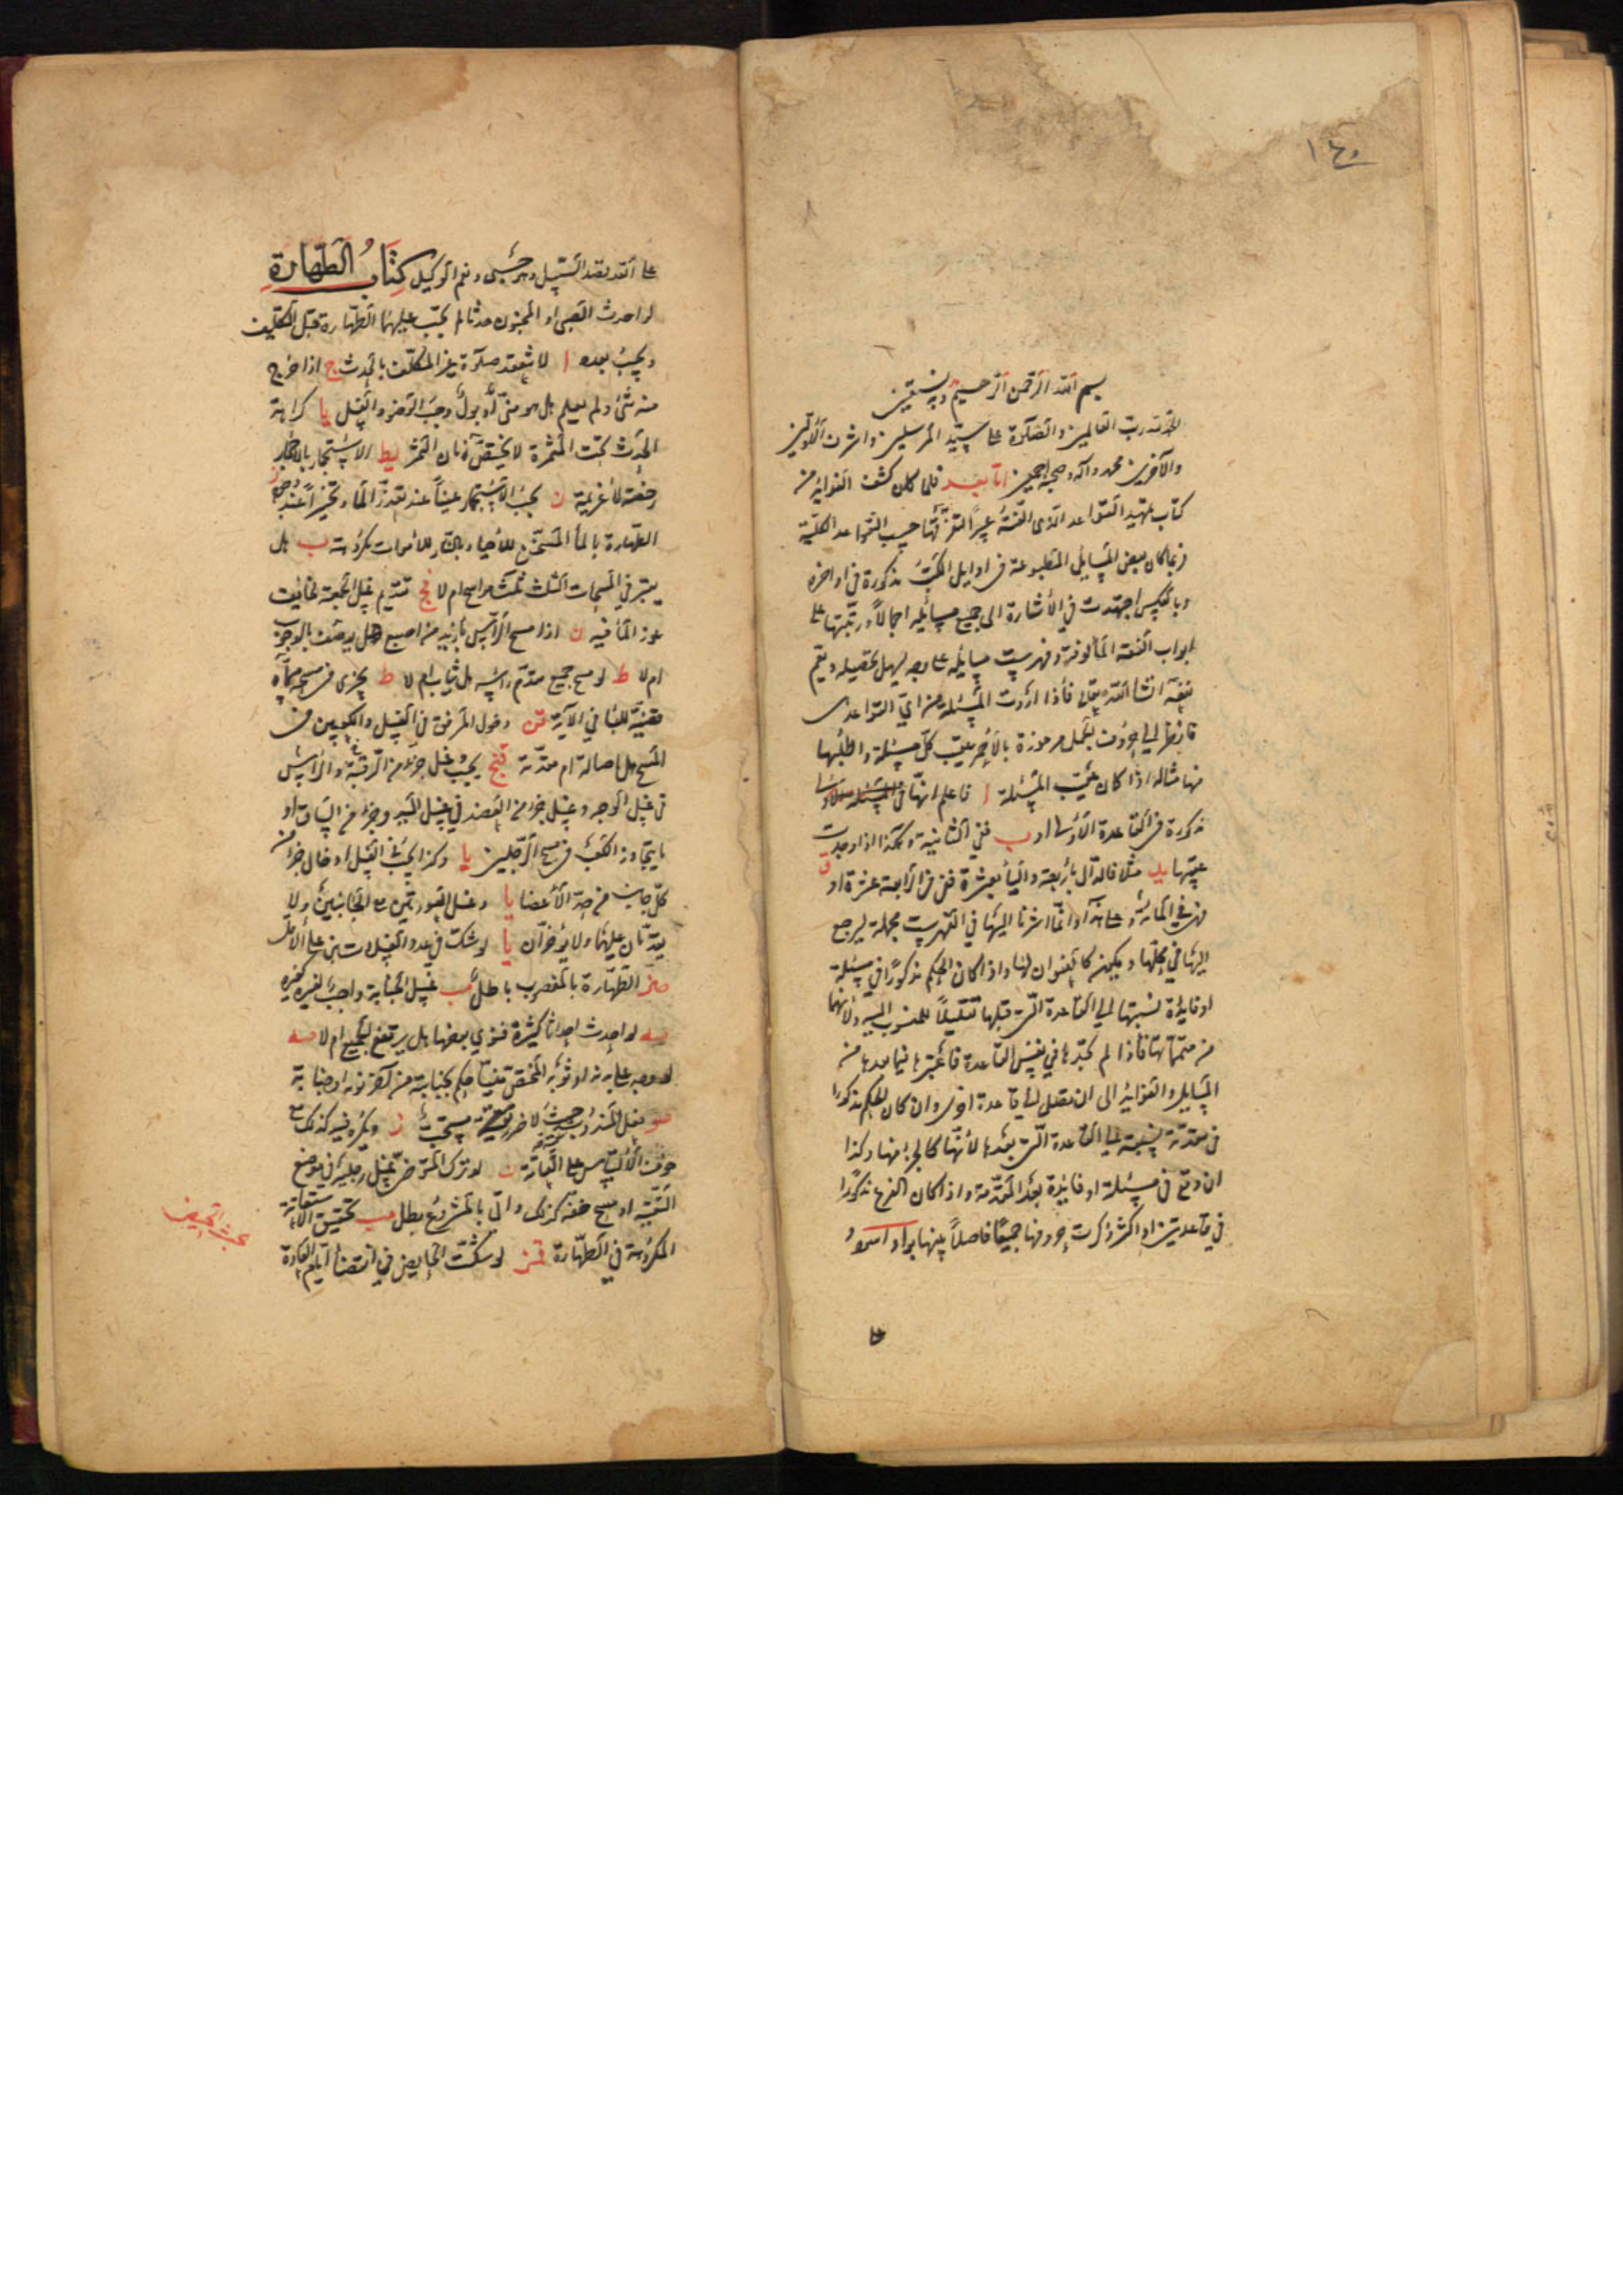 ١٤٠
بسم الله الرحمن الرحيم وبه نستعين
الحمد لله رب العالمين والصلوة على سيد المرسلين واشرف الاولين
والآخرين محمد وآله وصحبه اجمعين اما بعد فلما كان كشف الفوائد من
كتاب تمهيد القواعد الذي الفته حسب القواعد الكلية
فربما كان بعض المسايل المطلوبة في اوايل الكتب مذكورة في اواخره
وبالعكس اجتهدت في الاشارة الى جميع مسائله اجمالاً ورتبتها على
ابواب الفقه المألوفة وفهرست مسائله على وجه يسهل تحصيله ويتم
نفعه انشا الله تعالى فاذا اردت المسئلة من اي القواعد
فانظر الى حروف الجمل مرموزة بالاحمر عقيب كل مسئلة واطلبها
منها مثاله اذا كان عقيب المسئلة ا فاعلم انها
مذكورة في القاعدة الاولى او ب ففي الثانية وهكذا اذا وجدت
عقيبها يد مثلا فالدال باربعة والياء بعشرة فهي في الرابعة عشرة او ق
فهي في المائة وعلى هذا وانما اشرنا اليها في الفهرست مجملة ليرجع
اليها في محلها ويكون كالعنوان لها واذا كان الحكم مذكورا في مسئلة
او فايدة نسبتها الى القاعدة التي قبلها تقليلاً للمنسوب اليه ولانها
من متمماتها فاذا لم تجدها في نفس القاعدة فاعتبرها فيما بعدها من
المسايل والفوايد الى ان تصل الى قاعدة اخرى وان كان الحكم مذكورا
في مقدمة نسبته الى القاعدة التي بعدها لانها كالجزء منها وكذا
ان وقع في مسئلة او فائدة بعد المقدمة واذا كان الفرع مذكورا
في قاعدتين او اكثر ذكرت حروفها جميعا فاصلاً بينها بواو اسود
على
على الله قصد السبيل وهو حسبي ونعم الوكيل كتاب الطهارة
لو احدث الصبي او المجنون حدثا لم يجب عليهما الطهارة قبل التكليف
ويجب بعده ا لا تنعقد صلوة غير المكلف بالحدث ج اذا خرج
منه شئ ولم يعلم هل هو مني او بول وجب الوضوء والغسل يا كراهة
الحدث تحت المثمرة لا يختص بزمان الثمر يط الاستجمار بالاحجار
رخصة لا عزيمة ن يجب الاستجمار عيناً عند تعذر الماء وتخيراً عند وجوده ز
الطهارة بالماء المسخن للاحياء بالنار للاموات مكروهة ب هل
يعتبر في المسحات الثلث ام لا فج تقديم غسل الجمعة لخائف
عوز الماء فيه ن اذا مسح الرأس بازيد من اصبع هل يوصف بالوجوب
ام لا ط لو مسح جميع مقدم راسه هل يثاب ام لا ط يجزي في مسحه مسماه
قضية للباء في الآية قن دخول المرفق في الغسل والكعبين في
المسح هل اصالة ام مقدمة قيج يجب غسل جزء من الرقبة والراس
في غسل الوجه وغسل جزء من العضد في غسل اليد وجزء من الساق او
ما يتجاوز الكعب في مسح الرجلين يا وكذا يجب في الغسل ادخال جزء من
كل جانب من حد الاعضا يا وغسل العورتين مع الجانبين ولا
يقدمان عليهما ولا يؤخران يا لو شك في عدد الغسلات بنى على الاقل
صز الطهارة بالمغصوب باطل مب غسل الجنابة واجب لغيره كغيره
يه لو احدث احداثا كثيرة فنوى بعضها هل يرتفع الجميع ام لا صه
لو وجد على بدنه او ثوبه المختص منيا حكم بجنابته من آخر نومه او جنابة
صو فعل المندوب حيث لا ضرر تقية مستحب ز ويكره فيه كذلك مع
خوف الالتباس على العامة ن لو ترك المتوضي غسل رجليه في موضع
التقية او مسح خفه كذلك واتى بالمشروع بطل مب تحقيق الاستعانة
المكروهة في الطهارة قمز لو شكت الحايض في انقضاء ايام العادة
بحث الحيض